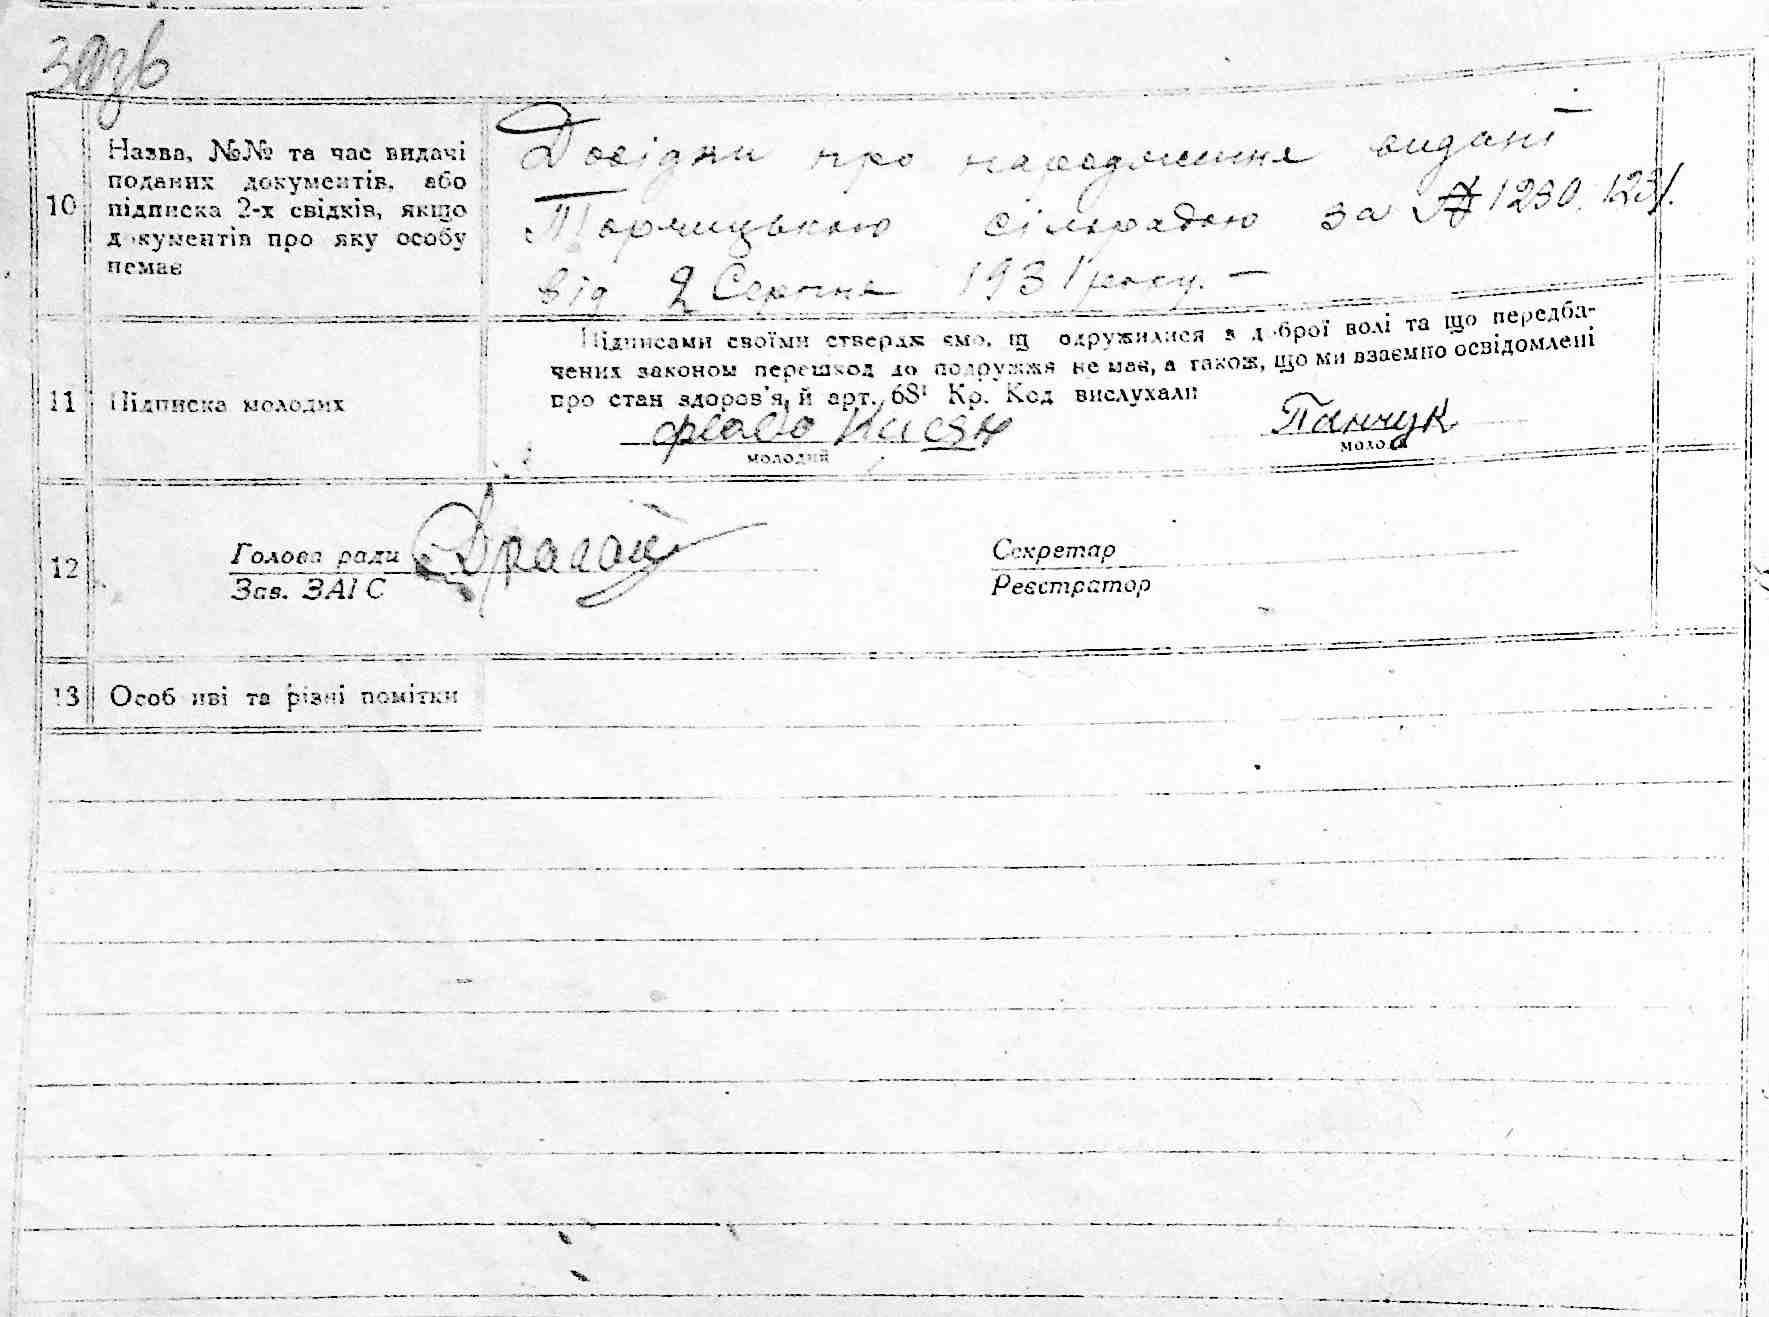 30зв
10
Назва, №№ та час видачі
поданих документів, або
підписка 2-х свідків, якщо
документів про яку особу
немає
Довідки про народження видані
сільрадою за № 1230, 1231.
від 2 Серпня 1931 року. —
11
Підписка молодих
Підписами своїми стверджуємо, що одружилися з доброї волі та що передба-
чених законом перешкод до подружжя не має, а також, що ми взаємно освідомлені
про стан здоров'я, й арт. 68¹ Кр. Код вислухали
Панчук
молодий
молода
12
Голова ради
Зав. ЗАГС
Секретар
Реєстратор
13
Особливі та різні помітки